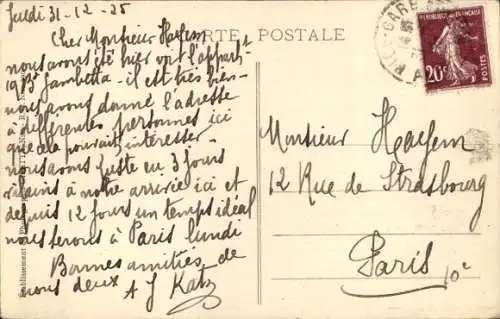 Jeudi 31-12-25
Cher Monsieur Haysem
nous avons été hier voir l'appart
193 Gambetta - il est très bien -
nous avons donné l'adresse
à différentes personnes ici
que cela pourrait intéresser -
nous avons juste eu 3 jours
à notre arrivée ici et
depuis 12 jours un temps idéal
nous serons à Paris lundi
Bonnes amitiés de
nous deux
A J Katz
CARTE POSTALE
NICE-GARE
REPUBLIQUE FRANÇAISE
20c
POSTES
Monsieur Haysem
12 Rue de Strasbourg
Paris
10e